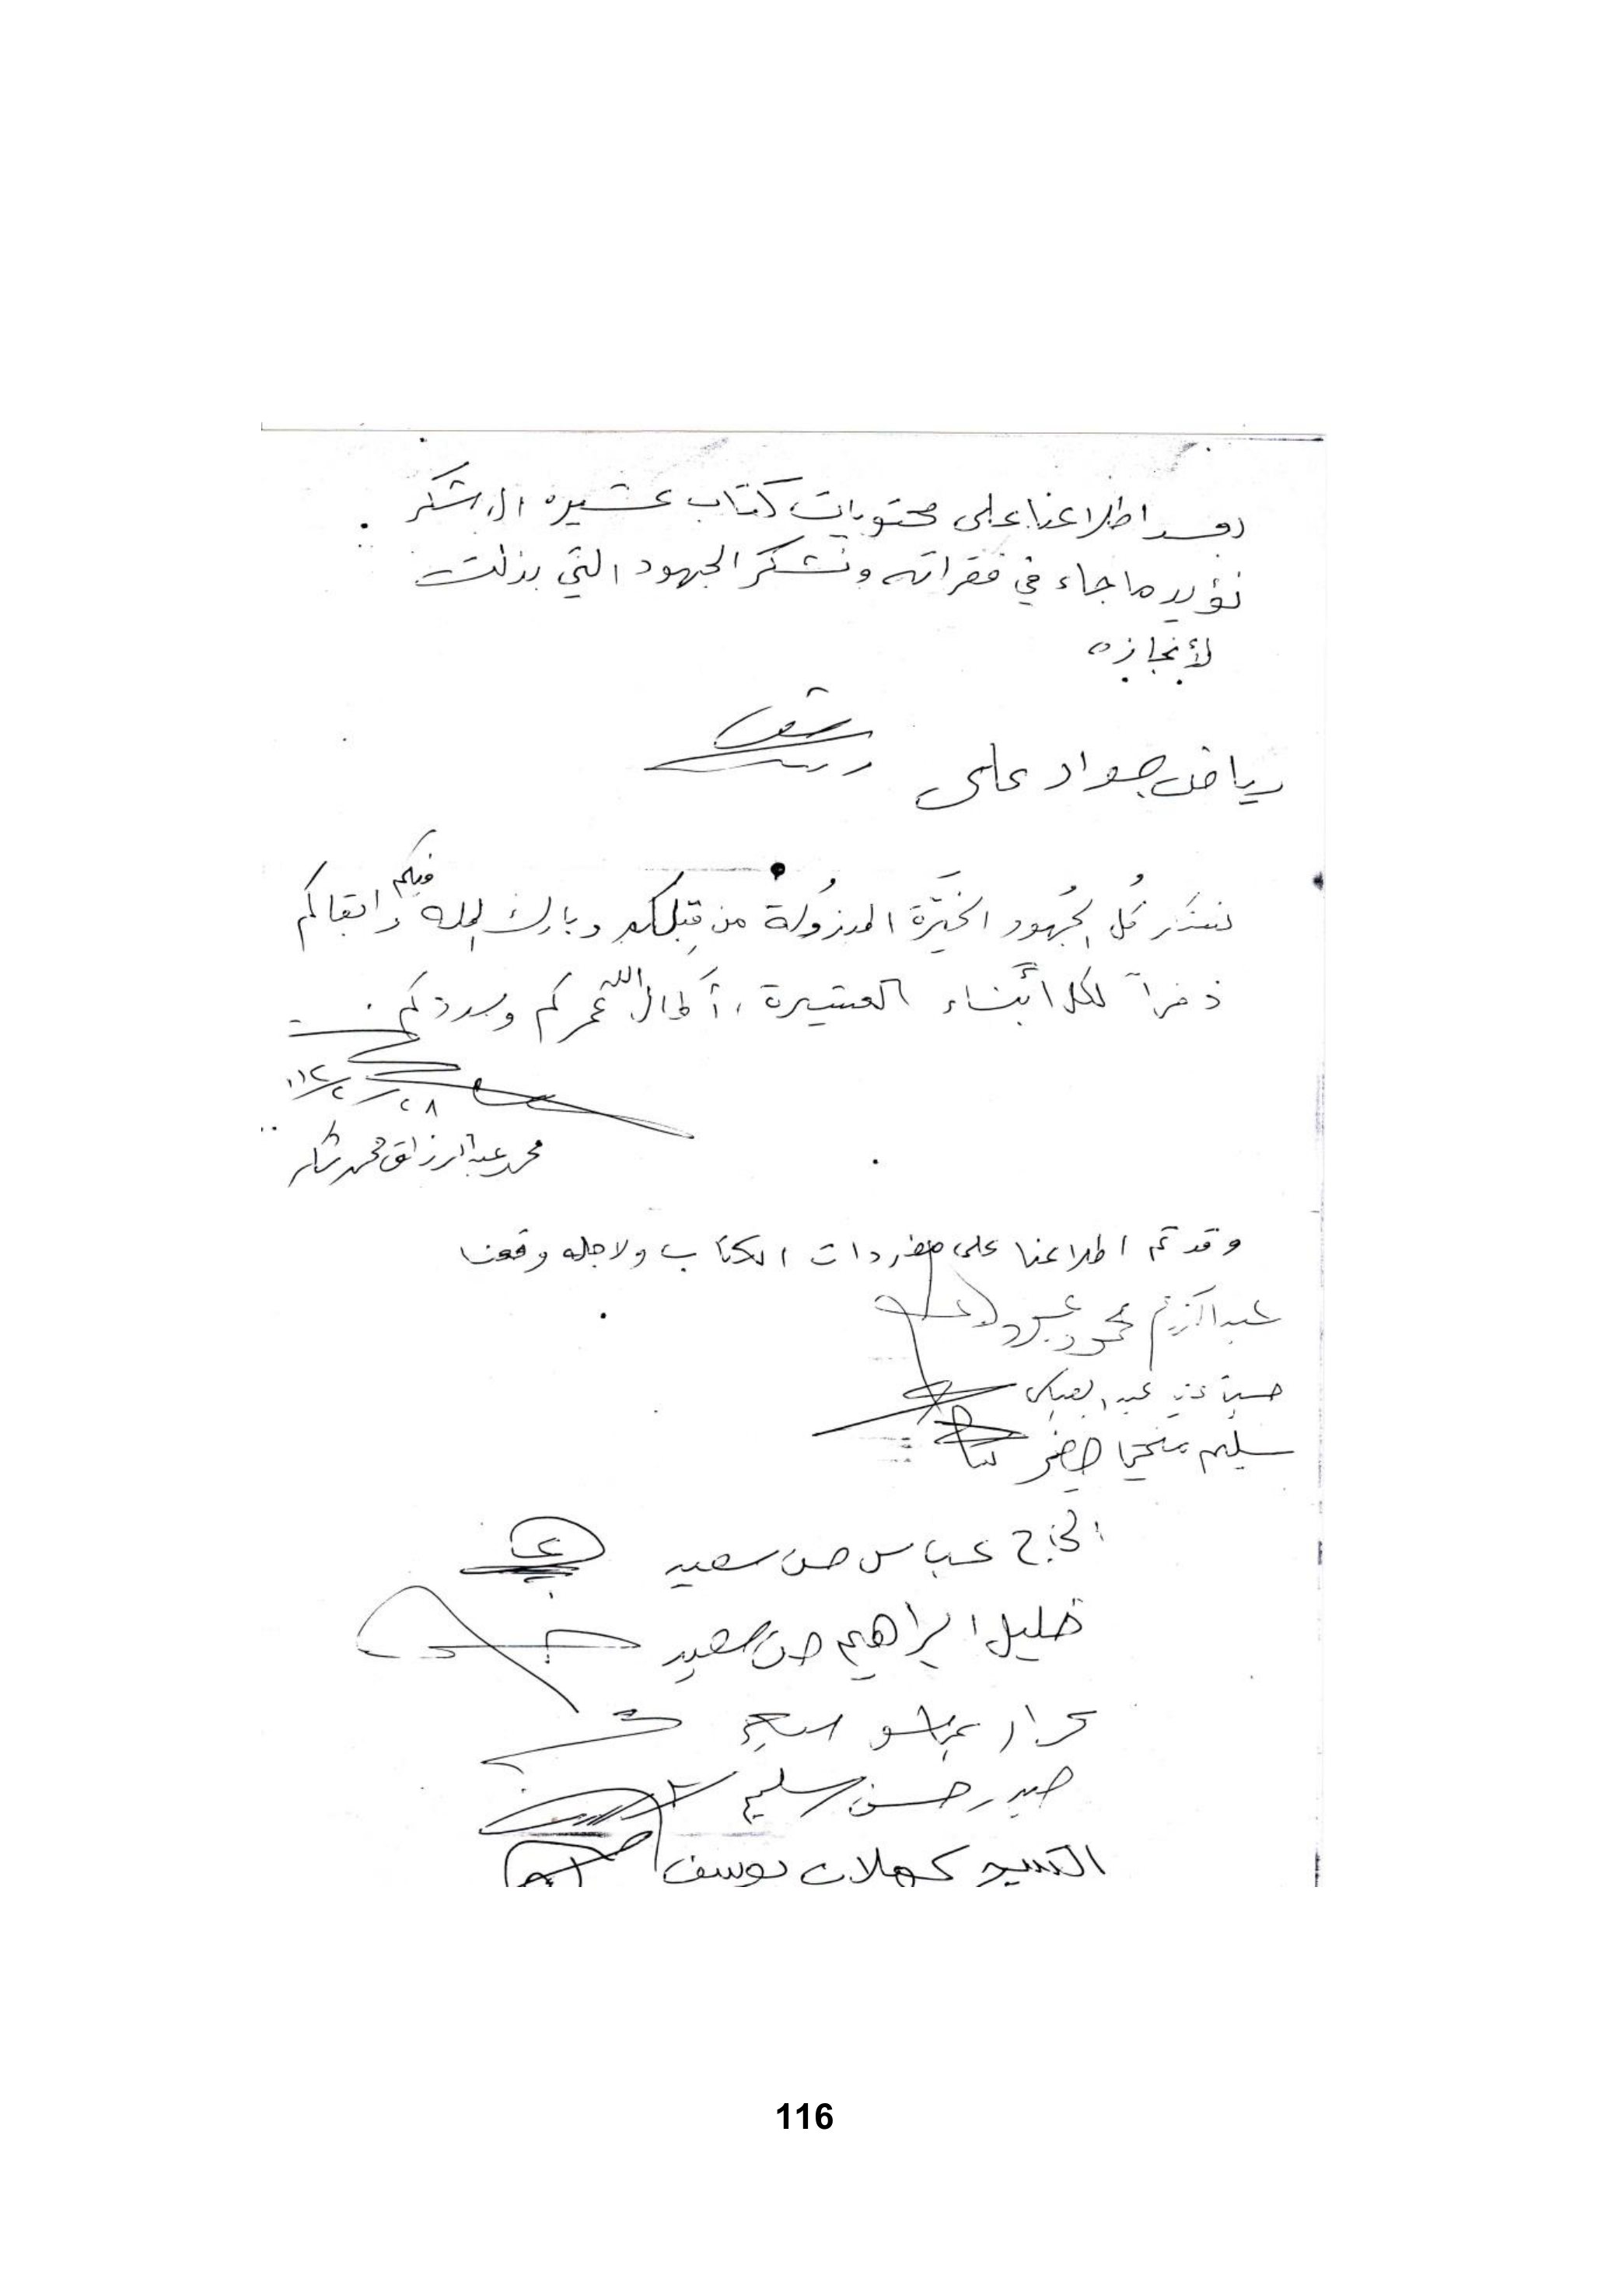 بعد اطلاعنا على محتويات كتاب عشيره البشكر
نؤيد ما جاء في فقراته ونشكر الجهود التي بذلت
لأنجازه
رياض جواد علي
نشكر كل الجُهود الخيَّرة المبذُولة من قِبلكم وبارك الله فيكم وابقاكم
ذخراً لكل أبناء العشيرة ، أطال الله عمركم وسددكم .
٢٨/٢/٠١٢
محمد عبد الرزاق محمد شاكر
وقد تم اطلاعنا على مفردات الكتاب ولاجله وقعنا
عبد الكريم محمود
حسين عبد العباس
سليم خضر
الحاج عباس حسن سعيد
خليل ابراهيم حسن سعيد
حيدر حسن سليم
السيد كهلان يوسف
116